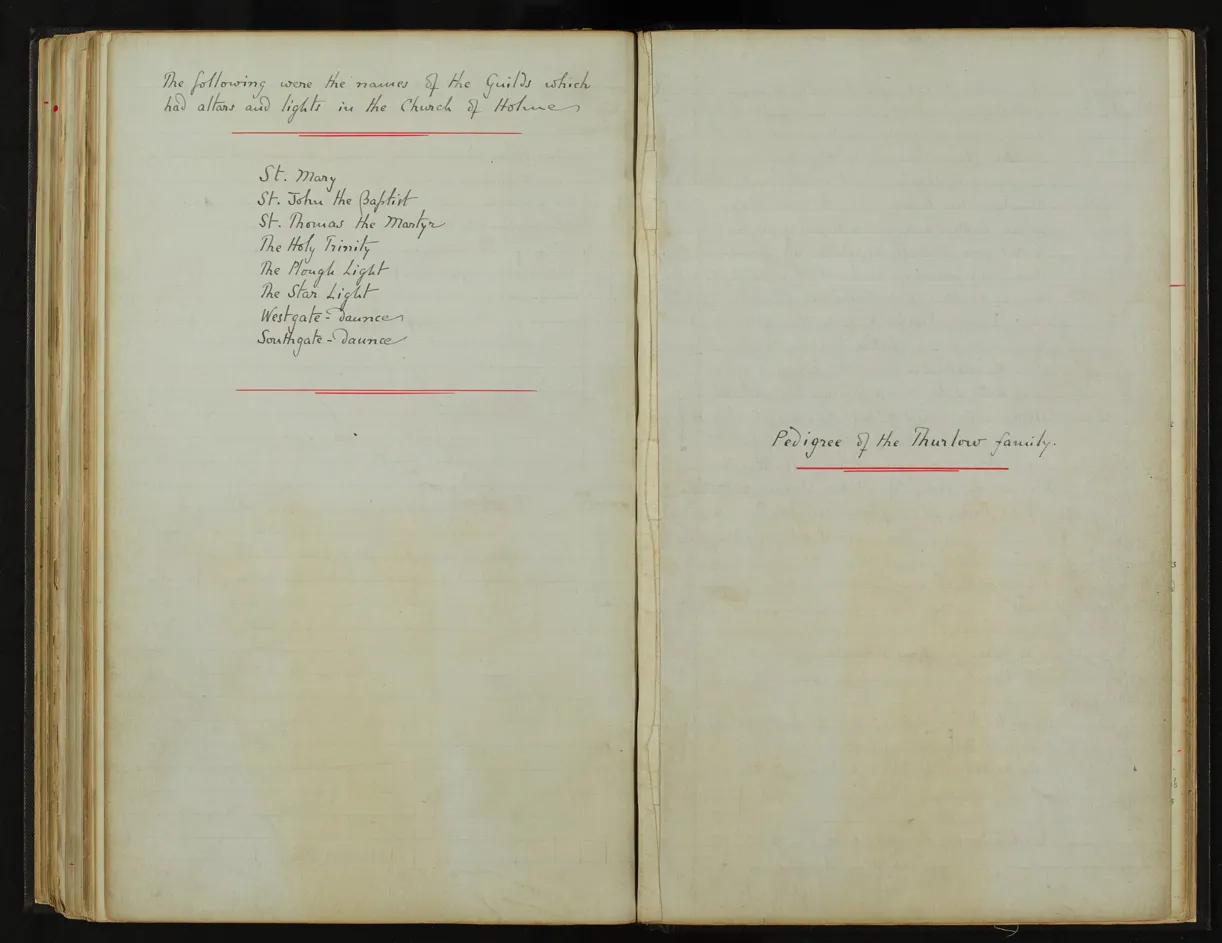 The following were the names of the Guilds which
had altars and lights in the Church of Holme
St. Mary
St. John the Baptist
St. Thomas the Martyr
The Holy Trinity
The Plough Light
The Star Light
Westgate-Daunce
Southgate-Daunce
Pedigree of the Thurlow family.